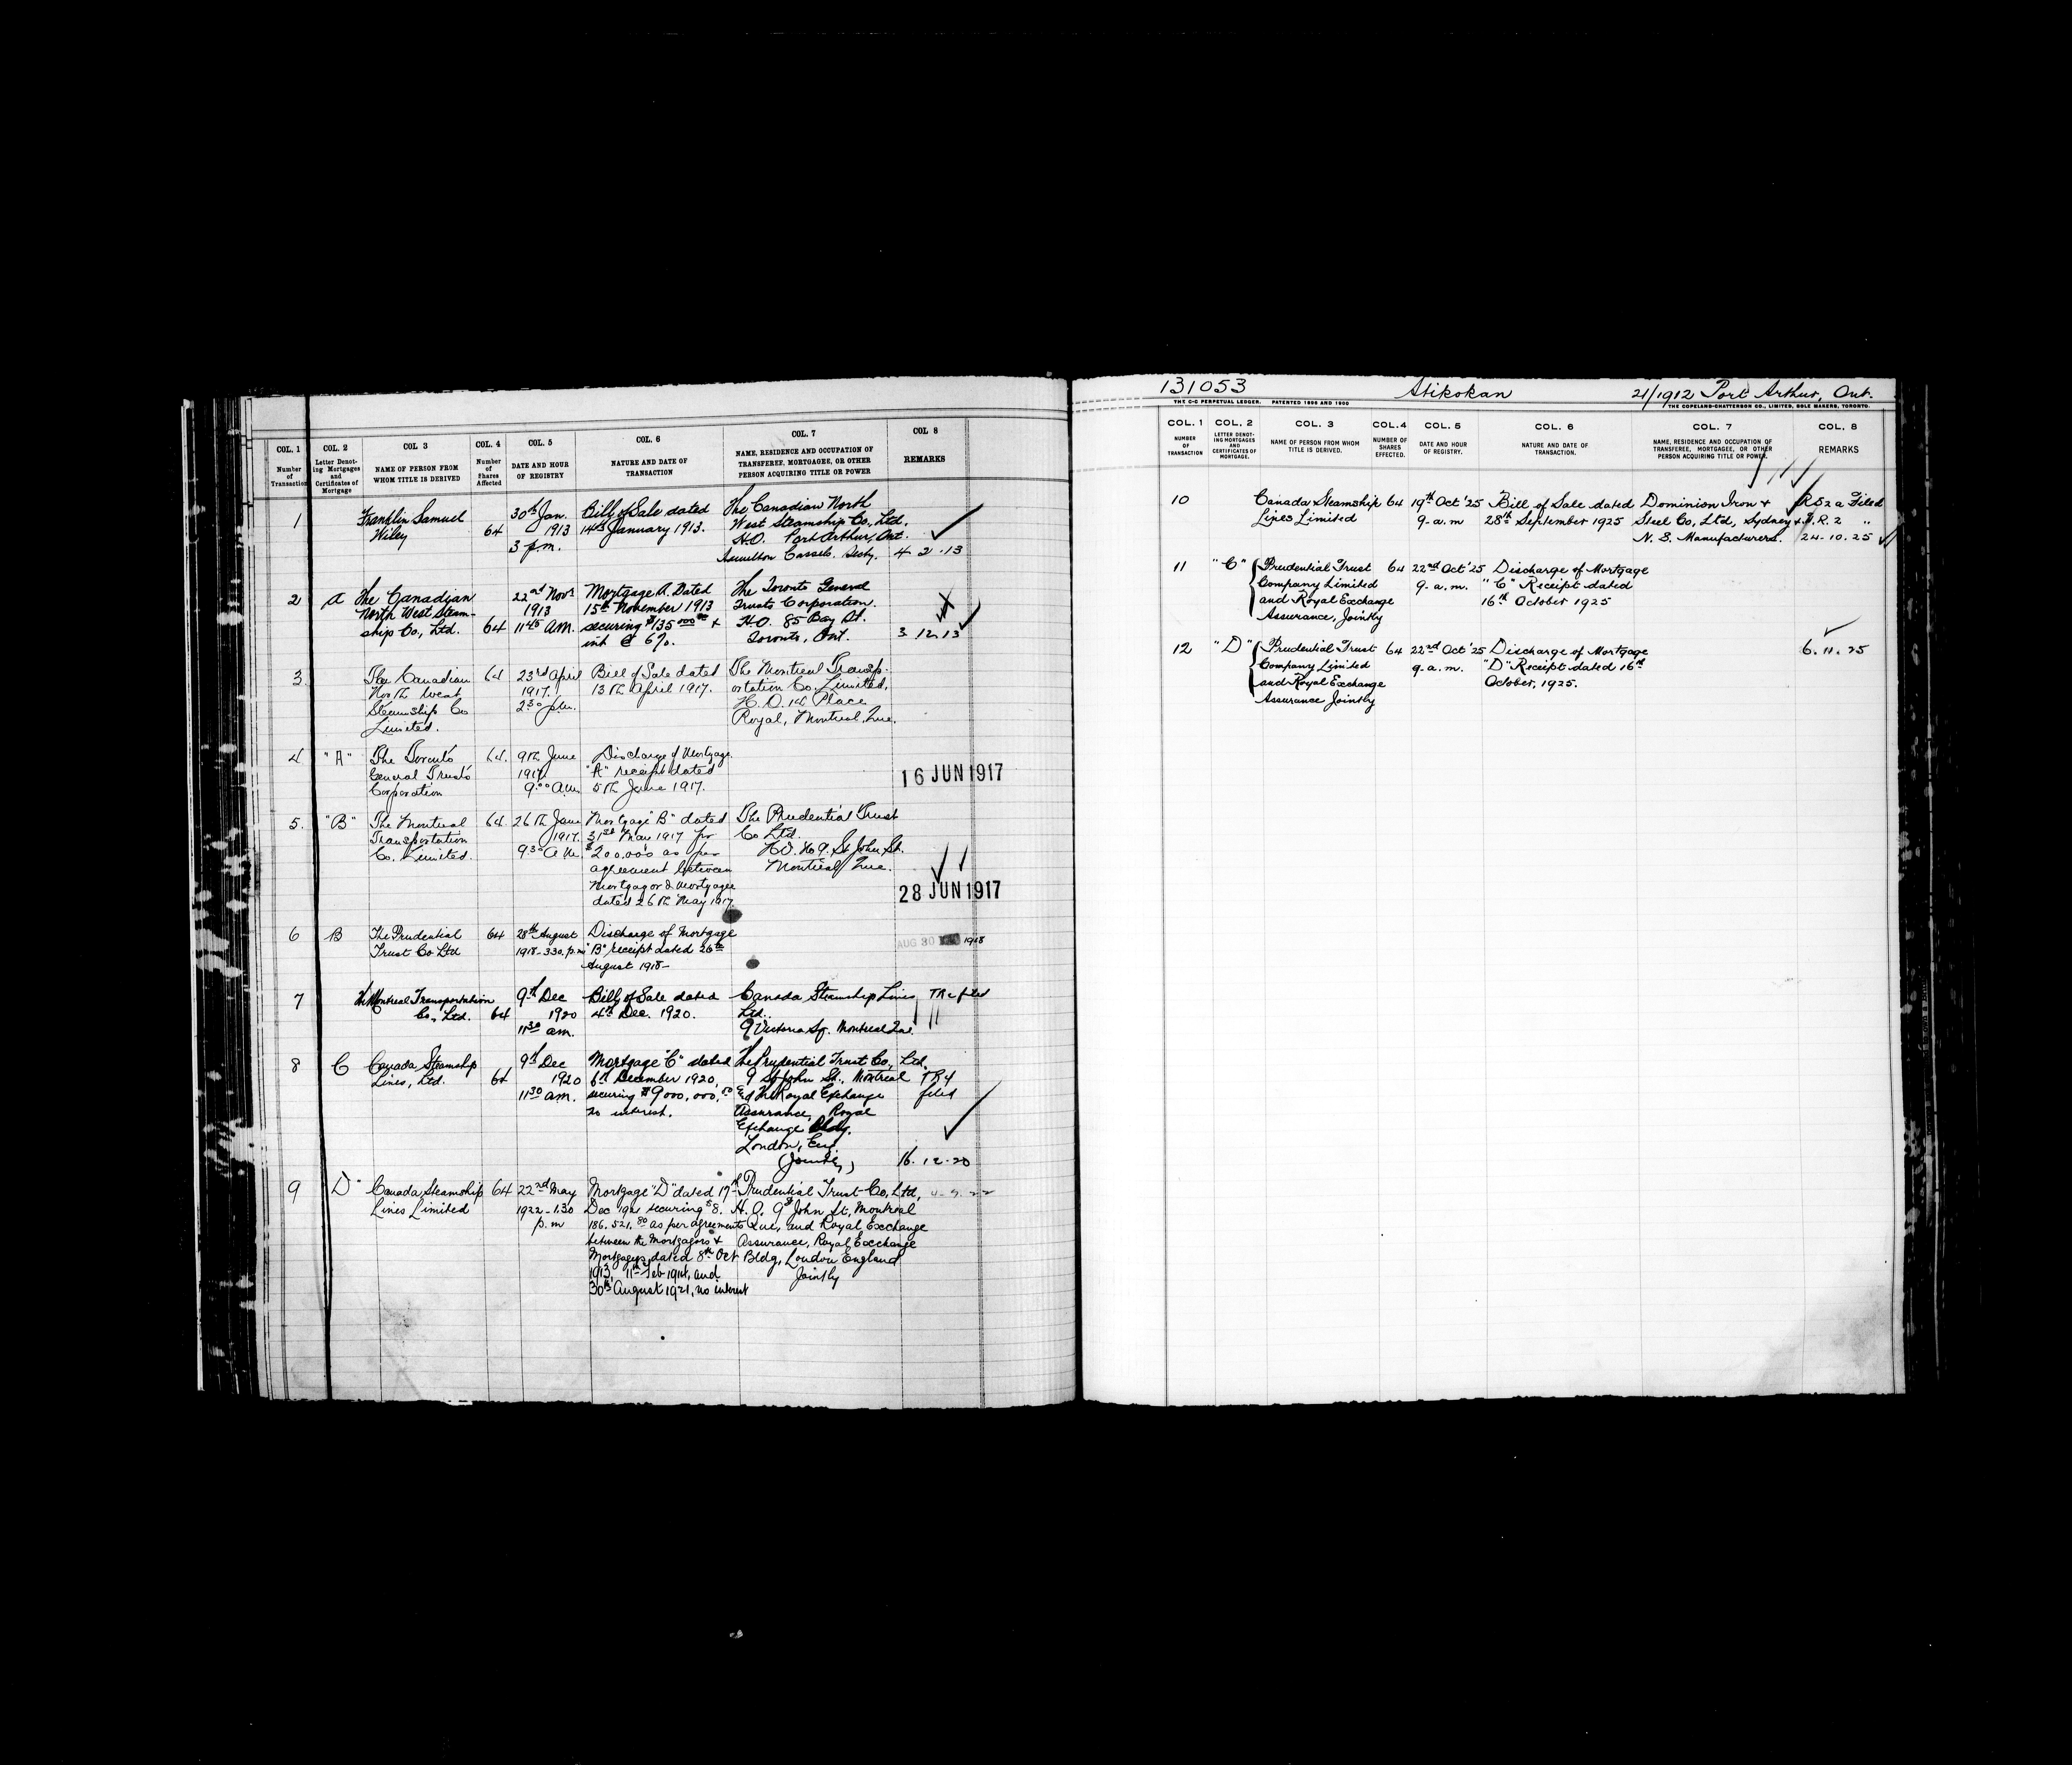 COL. 1
Number
of
Transaction
COL. 2
Letter Denot-
ing Mortgages
and
Certificates of
Mortgage
COL. 3
NAME OF PERSON FROM
WHOM TITLE IS DERIVED
COL. 4
Number
of
Shares
Affected
COL. 5
DATE AND HOUR
OF REGISTRY
COL. 6
NATURE AND DATE OF
TRANSACTION
COL. 7
NAME, RESIDENCE AND OCCUPATION OF
TRANSFEREE, MORTGAGEE, OR OTHER
PERSON ACQUIRING TITLE OR POWER
COL 8
REMARKS
1
Franklin Samuel
Wiley
64
30th Jan.
1913
3 p.m.
Bill of Sale dated
14th January 1913.
The Canadian North
West Steamship Co, Ltd.
H.O. Port Arthur, Ont.
Hamilton Cassels. Secty.
4 2 .13
2
A
The Canadian
North West Steam-
ship Co., Ltd.
64
22nd Novr
1913
11 45 AM.
Mortgage A. Dated
15th November 1913
securing $135 000 00 +
int @ 6%.
The Toronto General
Trusts Corporation.
H.O. 85 Bay St.
Toronto, Ont.
3 12 13
3.
The Canadian
North West
Steamship Co
Limited.
64
23rd April
1917.
2 30 p.m.
Bill of Sale dated
13th April 1917.
The Montreal Transp-
ortation Co. Limited,
H.O. 14 Place
Royal, Montreal, Que.
4
"A"
The Toronto
General Trusts
Corporation
64.
9th June
1917
9.00 a.m.
Discharge of Mortgage
"A" receipt dated
5th June 1917.
16 JUN 1917
5.
"B"
The Montreal
Transportation
Co. Limited.
64
26th June
1917.
9 30 a.m.
Mortgage "B" dated
31st May 1917 for
$200,000 as per
agreement between
Mortgagor & Mortgagee
dated 26th May 1917.
The Prudential Trust
Co Ltd.
H.O. No 9. St John St.
Montreal Que.
28 JUN 1917
6
B
The Prudential
Trust Co Ltd
64
28th August
1918 - 3 30. p.m
Discharge of Mortgage
"B" receipt dated 26th
August 1918 -
AUG 30 1918
7
The Montreal Transportation
Co., Ltd.
64
9th Dec
1920
11 30 am.
Bill of Sale dated
4th Dec. 1920.
Canada Steamship Lines
Ltd.
9 Victoria Sq. Montreal Que.
filed
8
C
Canada Steamship
Lines, Ltd.
64
9th Dec
1920
11 30 am.
Mortgage "C" dated
6th December 1920,
securing $9 000, 000, 00
no interest.
The Prudential Trust Co., Ltd.
9 St John St., Montreal
and The Royal Exchange
Assurance, Royal
Exchange Bldg.
London, Eng.
(Jointly)
TR4
filed
16. 12 - 20
9
D
Canada Steamship
Lines Limited
64
22nd May
1922 - 1.30
p.m
Mortgage "D" dated 17th
Dec 1921 securing $8.
186. 521. 80 as per agreements
between the Mortgagors +
Mortgagees dated 8th Oct
1913, 11th Feb 1914, and
30th August 1921, no interest
Prudential Trust Co, Ltd,
H.O. 9 St John St, Montreal
Que, and Royal Exchange
Assurance, Royal Exchange
Bldg, London England
Jointly
131053 Atikokan 21/1912 Port Arthur, Ont.
THE C-C PERPETUAL LEDGER. PATENTED 1899 AND 1900
THE COPELAND-CHATTERSON CO., LIMITED, SOLE MAKERS, TORONTO.
COL. 1
NUMBER
OF
TRANSACTION
COL. 2
LETTER DENOT-
ING MORTGAGES
AND
CERTIFICATES OF
MORTGAGE.
COL. 3
NAME OF PERSON FROM WHOM
TITLE IS DERIVED.
COL. 4
NUMBER OF
SHARES
EFFECTED.
COL. 5
DATE AND HOUR
OF REGISTRY.
COL. 6
NATURE AND DATE OF
TRANSACTION.
COL. 7
NAME, RESIDENCE AND OCCUPATION OF
TRANSFEREE, MORTGAGEE, OR OTHER
PERSON ACQUIRING TITLE OR POWER.
COL. 8
REMARKS
10
Canada Steamship
Lines Limited
64
19th Oct '25
9. a.m
Bill of Sale dated
28th September 1925
Dominion Iron +
Steel Co, Ltd, Sydney
N. S. Manufacturers.
RS 2 a Filed
R. 2 "
24-10. 25
11
"C"
Prudential Trust
Company Limited
and Royal Exchange
Assurance, Jointly
64
22nd Oct '25
9. a. m.
Discharge of Mortgage
"C" Receipt dated
16th October 1925
12
"D"
Prudential Trust
Company Limited
and Royal Exchange
Assurance Jointly
64
22nd Oct '25
9. a. m.
Discharge of Mortgage
"D" Receipt dated 16th
October, 1925.
6. 11. 25